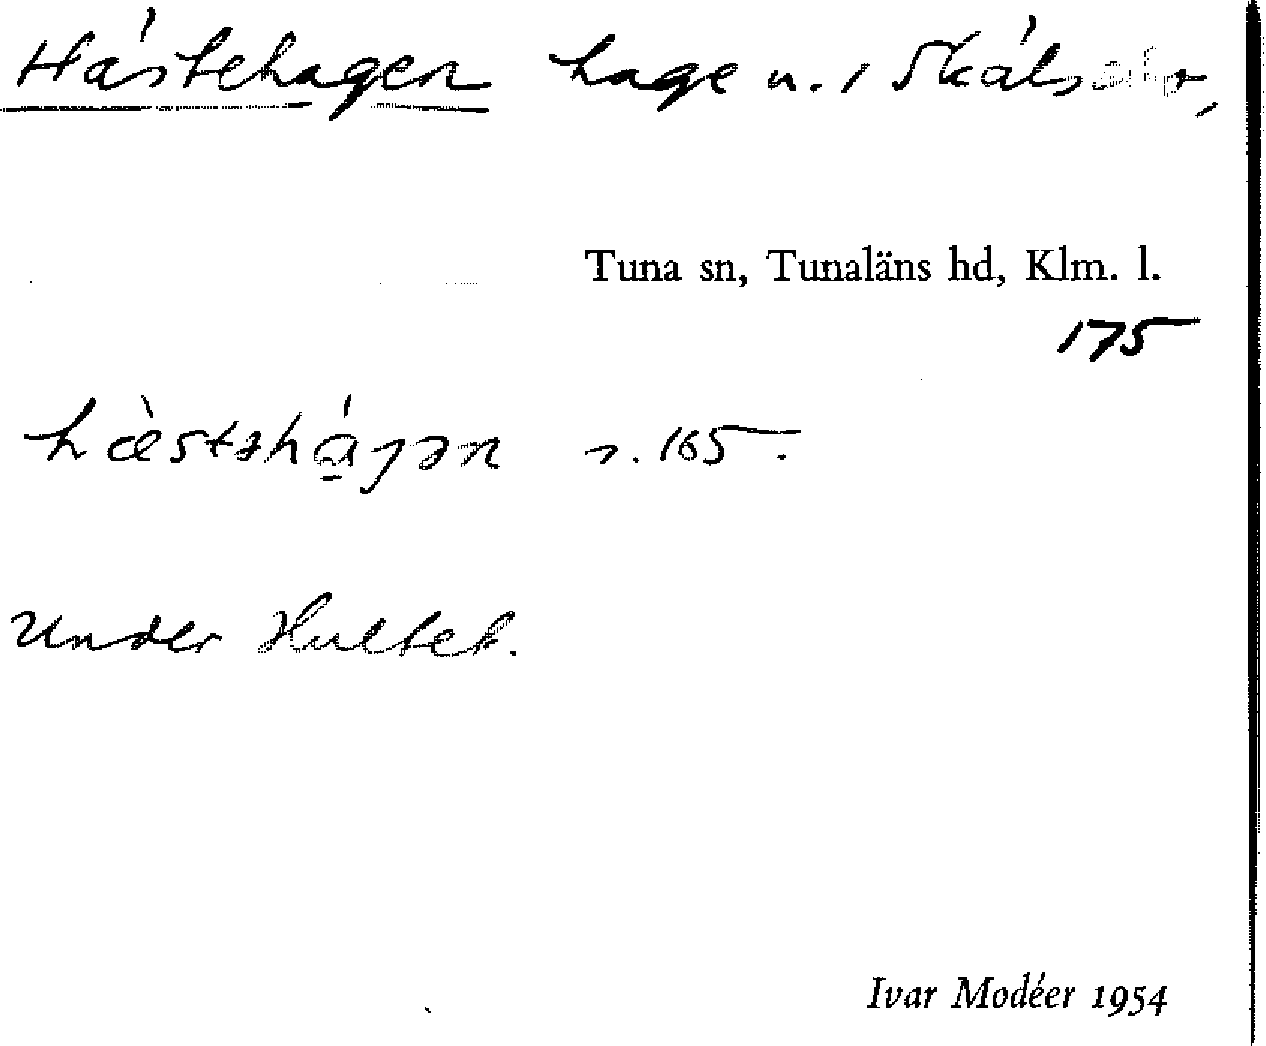 Hästehagen hage u. i
Tuna sn, Tunaläns hd, Klm. l.
175
hæ̀stəhá̱gən r. 165.
Under Hultet.
Ivar Modéer 1954